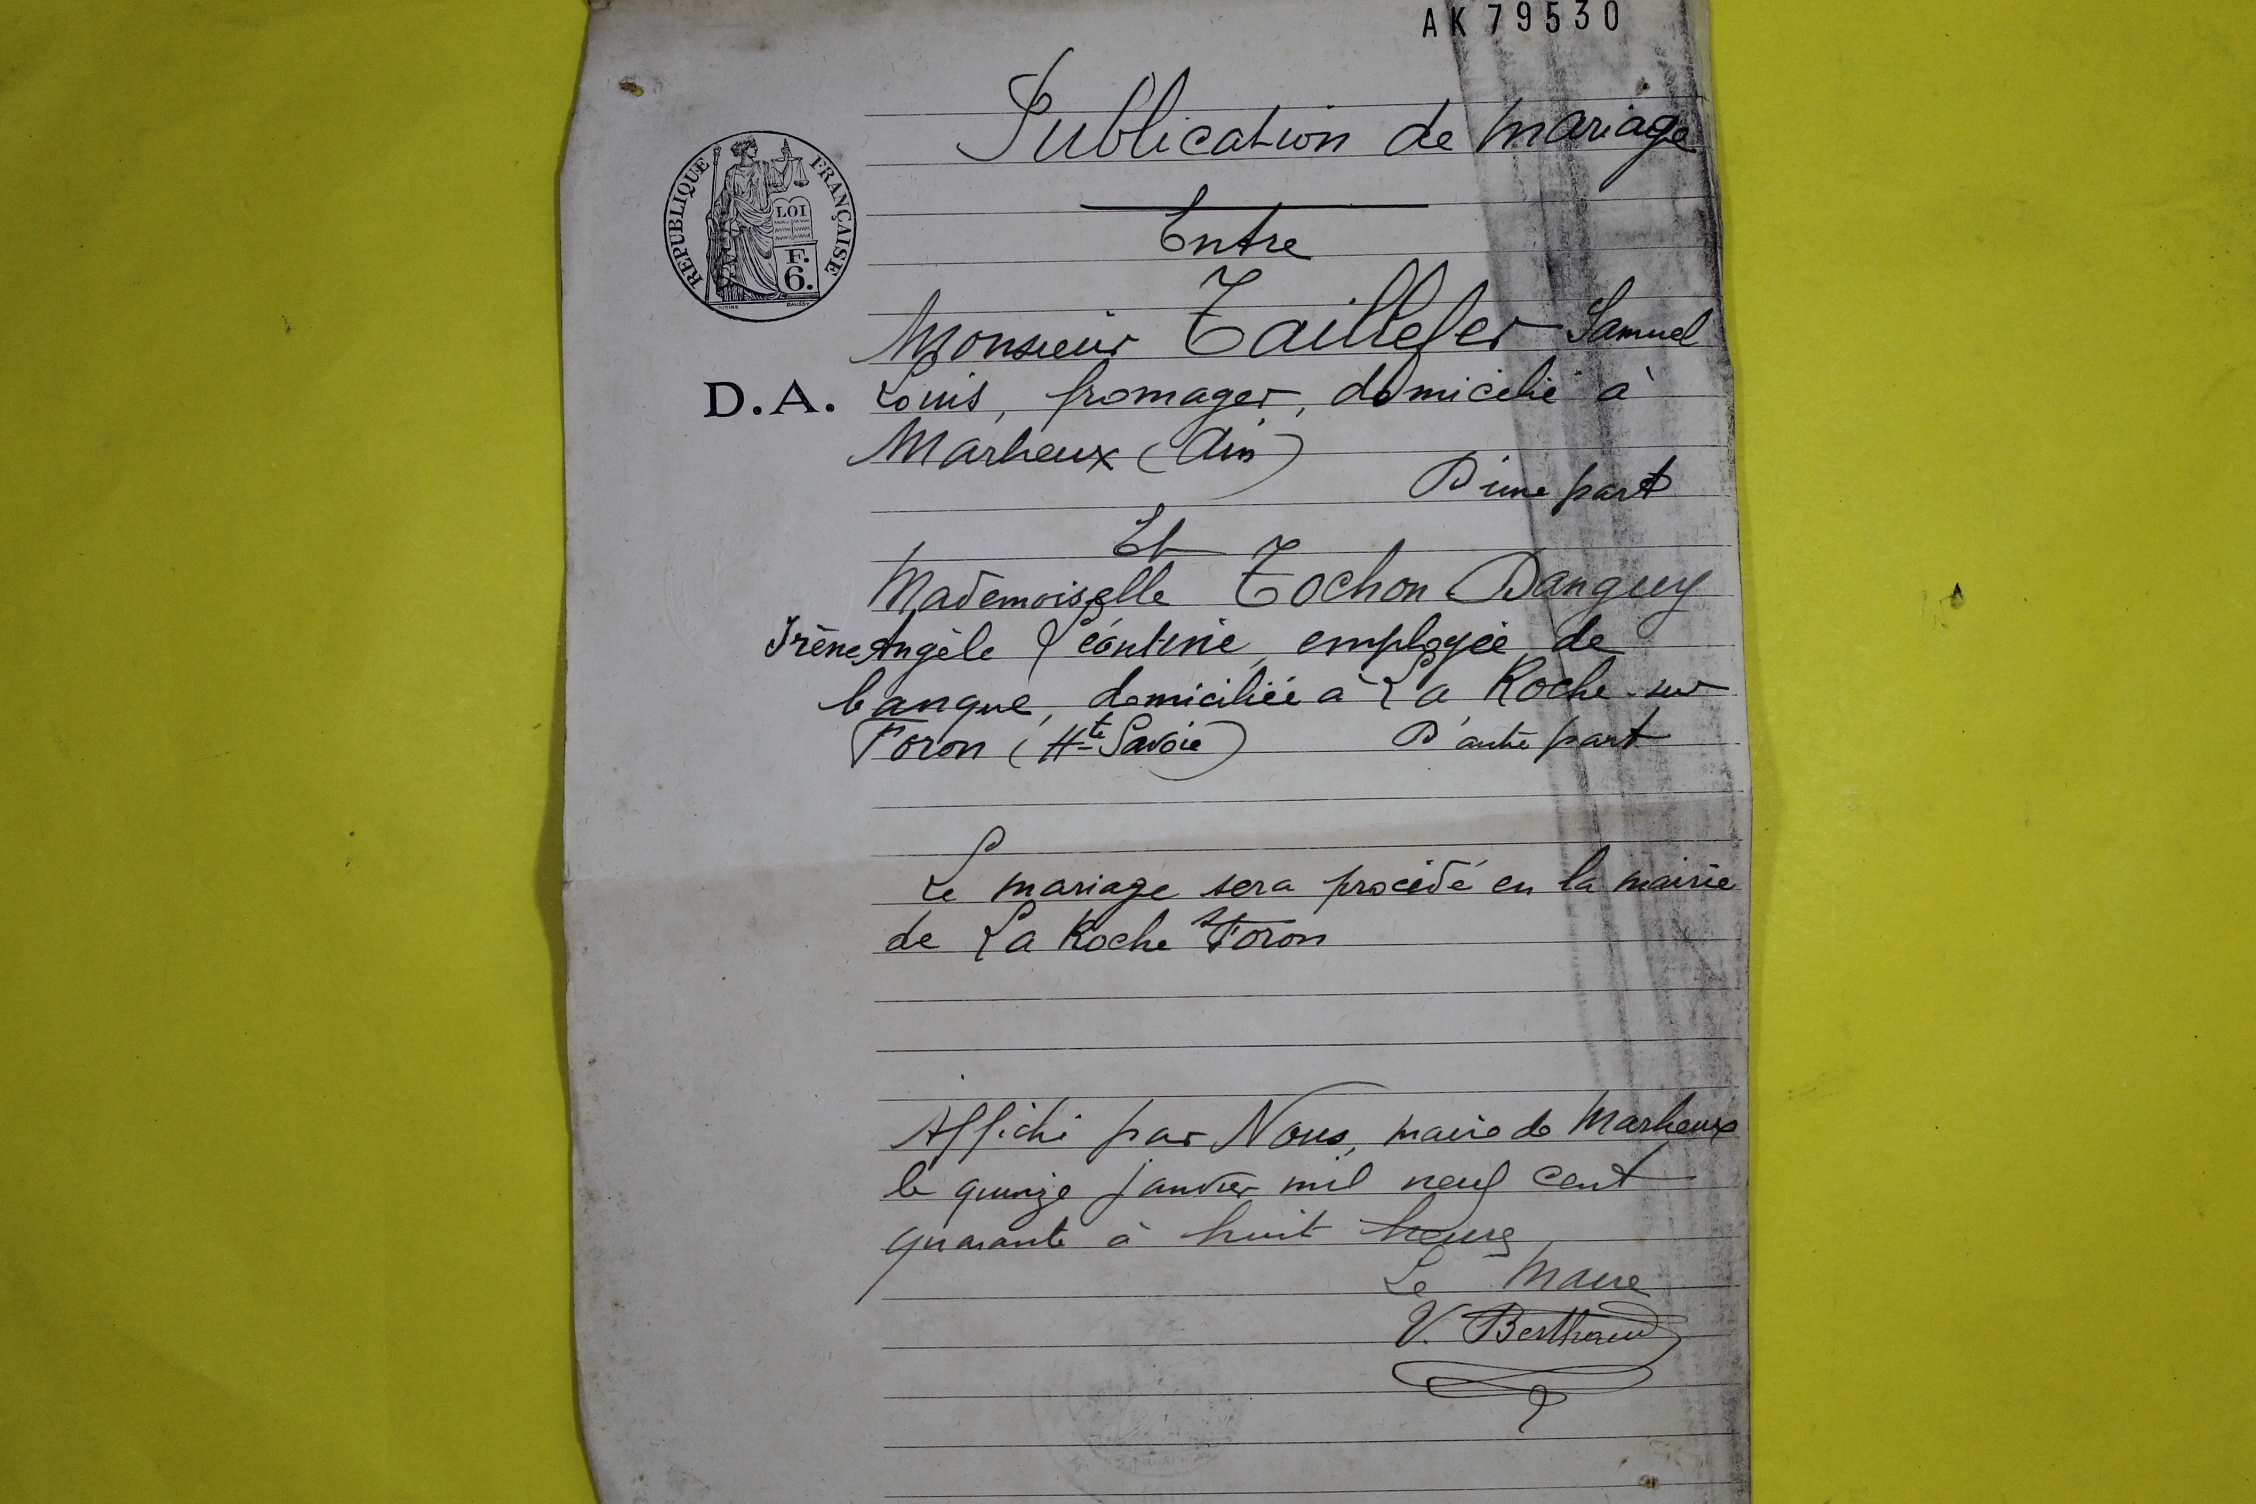 AK 79530
Publication de mariage
Entre
RÉPUBLIQUE FRANÇAISE
LOI
F.
6.
Monsieur Taillefer Samuel
D.A.
Louis, fromager, domicilié à
Marlieux (Ain)
D'une part
Et
Mademoiselle Tochon Danguy
Irène Angèle Léontine, employée de
banque, domiciliée à La Roche-sur
Foron (Hte Savoie) D'autre part
Le mariage sera procédé en la mairie
de La Roche s/Foron
Affiché par Nous, maire de Marlieux
le quinze janvier mil neuf cent
quarante à huit heures
Le Maire
V. Berthaud